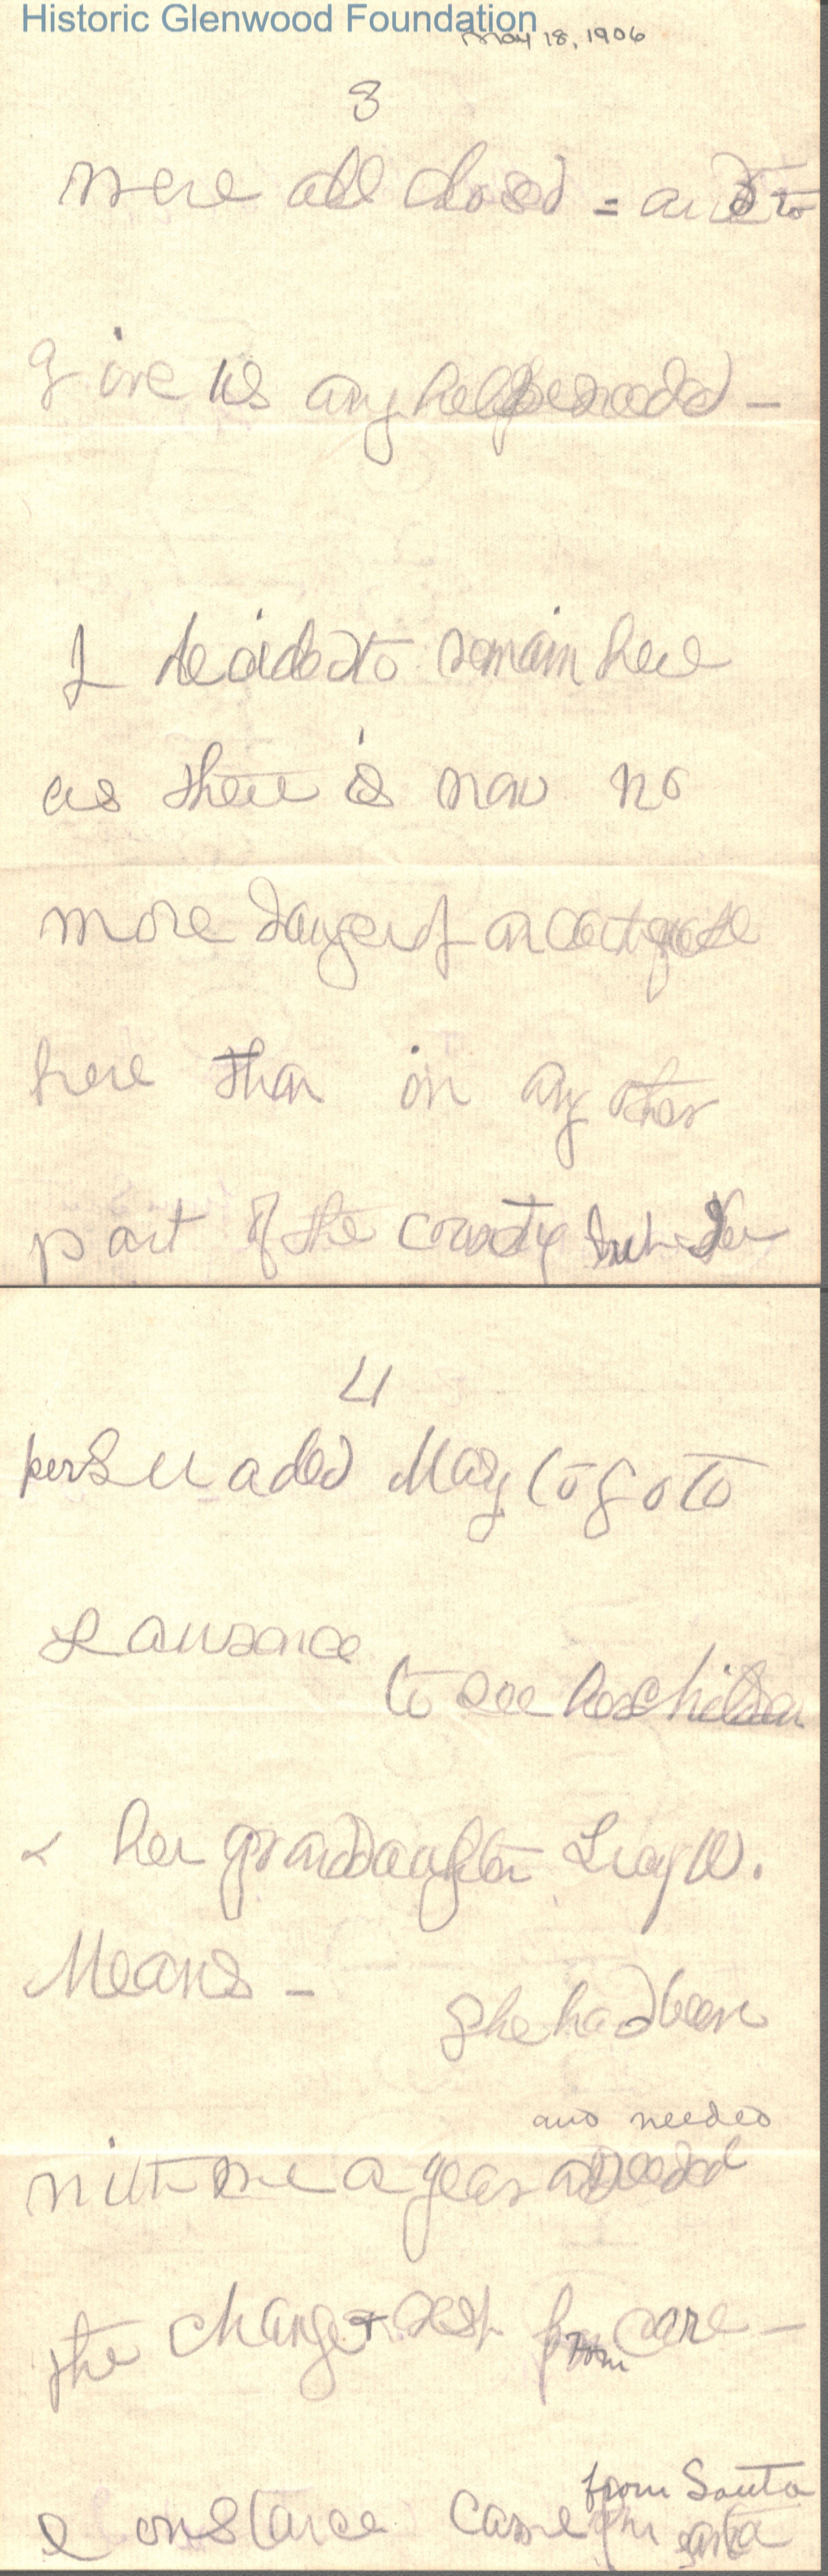 Historic Glenwood Foundation
May 18, 1906
3
were all closed = and to
give us any help needed -
I decided to remain here
as there is now no
more danger of an earthquake
here than in any other
part of the country but
4
persuaded May to go to
Lawrence
to see her children
& her granddaughter Lucy W.
Means -
She had been
and needed
with me a year and needed
the change & rest from care -
from
from Santa
Constance came from Santa